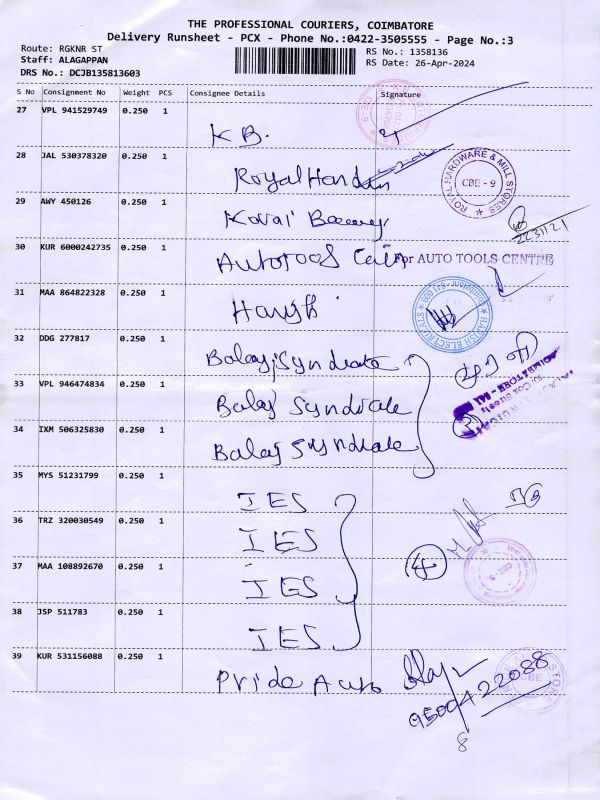 THE PROFESSIONAL COURIERS, COIMBATORE
Delivery Runsheet - PCX - Phone No.:0422-3505555 - Page No.:3
Route: RGKNR ST
RS No.: 1358136
Staff: ALAGAPPAN
RS Date: 26-Apr-2024
DRS No.: DCJB135813603
S No Consignment No Weight PCS Consignee Details Signature
27 VPL 941529749 0.250 1
K B.
28 JAL 530378320 0.250 1
Royal Hardw
ROYAL HARDWARE & MILL STORES
CBE - 9
29 AWY 450126 0.250 1
Kovai
2231121
30 KUR 6000242735 0.250 1
Autotools
For AUTO TOOLS CENTRE
31 MAA 864822328 0.250 1
Harish
HARISH ELECTRICALS
32 DDG 277817 0.250 1
Balaji Syndicate
33 VPL 946474834 0.250 1
Balaj Syndicate
34 IXM 506325830 0.250 1
Balaj Syndicate
3
35 MYS 51231799 0.250 1
IES
36 TRZ 320030549 0.250 1
IES
37 MAA 108892670 0.250 1
IES
4
38 JSP 511783 0.250 1
IES
39 KUR 531156088 0.250 1
Pride Auto
9500422088
8